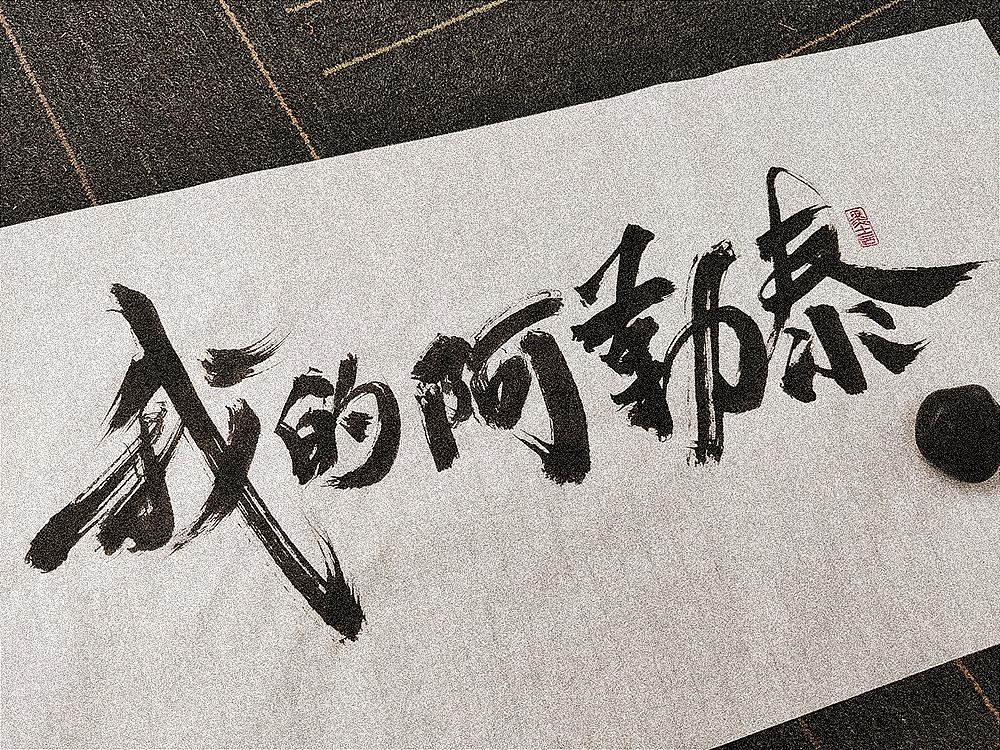 我的阿勒泰